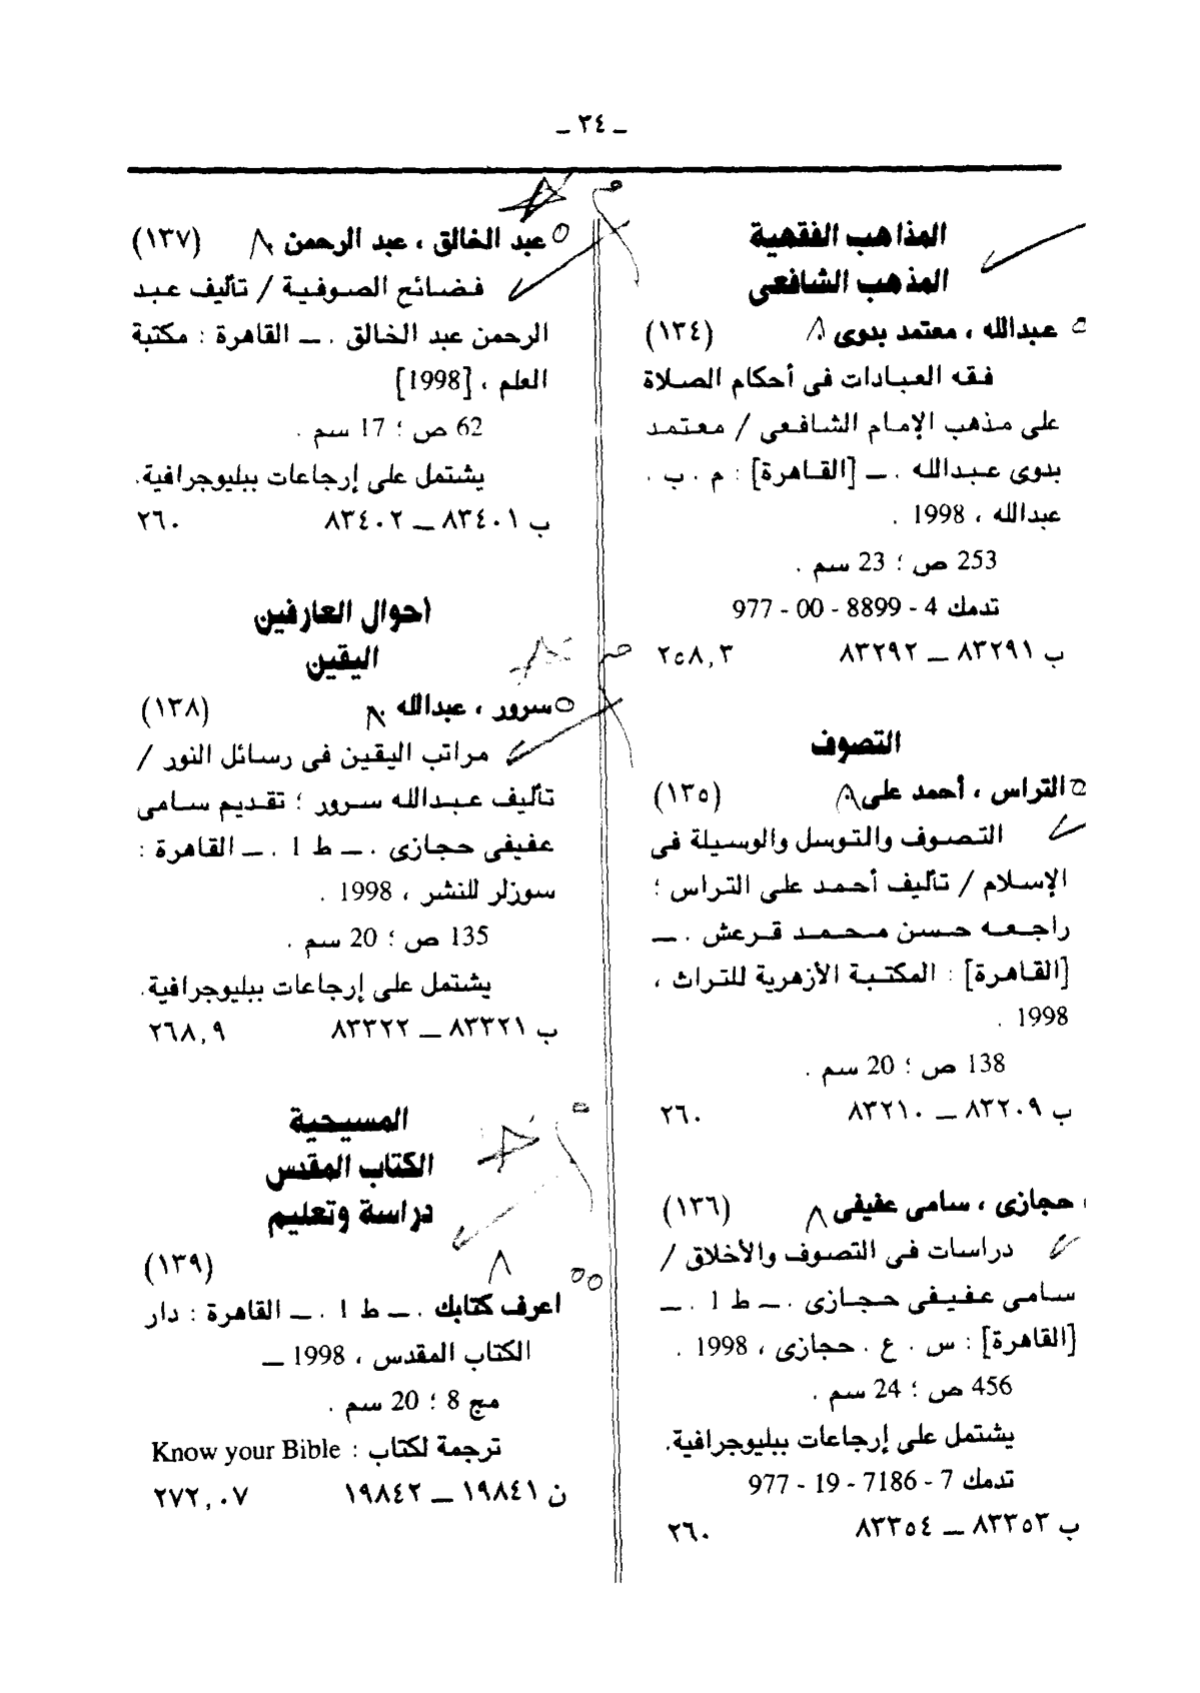 ـ ٣٤ ـ
المذاهب الفقهية
المذهب الشافعى
عبدالله ، معتمد بدوى (١٣٤)
فقه العبادات فى أحكام الصلاة
على مذهب الإمام الشافعى / معتمد
بدوى عبدالله . ـ [القاهرة] : م . ب .
عبدالله ، 1998 .
253 ص ؛ 23 سم .
تدمك 4 - 8899 - 00 - 977
ب ٨٣٢٩١ ـ ٨٣٢٩٢ ٢٥٨,٣
التصوف
التراس ، أحمد على (١٣٥)
التصوف والتوسل والوسيلة فى
الإسلام / تأليف أحمد على التراس ؛
راجعه حسن محمد قرعش . ـ
[القاهرة] : المكتبة الأزهرية للتراث ،
1998 .
138 ص ؛ 20 سم .
ب ٨٣٢٠٩ ـ ٨٣٢١٠ ٢٦٠
حجازى ، سامى عفيفى (١٣٦)
دراسات فى التصوف والأخلاق /
سامى عفيفى حجازى . ـ ط ١ . ـ
[القاهرة] : س . ع . حجازى ، 1998 .
456 ص ؛ 24 سم .
يشتمل على إرجاعات ببليوجرافية.
تدمك 7 - 7186 - 19 - 977
ب ٨٣٣٥٣ ـ ٨٣٣٥٤ ٢٦٠
عبد الخالق ، عبد الرحمن (١٣٧)
فضائح الصوفية / تأليف عبد
الرحمن عبد الخالق . ـ القاهرة : مكتبة
العلم ، [1998]
62 ص ؛ 17 سم .
يشتمل على إرجاعات ببليوجرافية.
ب ٨٣٤٠١ ـ ٨٣٤٠٢ ٢٦٠
أحوال العارفين
اليقين
سرور ، عبدالله (١٣٨)
مراتب اليقين فى رسائل النور /
تأليف عبدالله سرور ؛ تقديم سامى
عفيفى حجازى . ـ ط ١ . ـ القاهرة :
سوزلر للنشر ، 1998 .
135 ص ؛ 20 سم .
يشتمل على إرجاعات ببليوجرافية.
ب ٨٣٣٢١ ـ ٨٣٣٢٢ ٢٦٨,٩
المسيحية
الكتاب المقدس
دراسة وتعليم
(١٣٩)
اعرف كتابك . ـ ط ١ . ـ القاهرة : دار
الكتاب المقدس ، 1998 ـ
مج 8 ؛ 20 سم .
ترجمة لكتاب : Know your Bible
ن ١٩٨٤١ ـ ١٩٨٤٢ ٢٧٢,٠٧